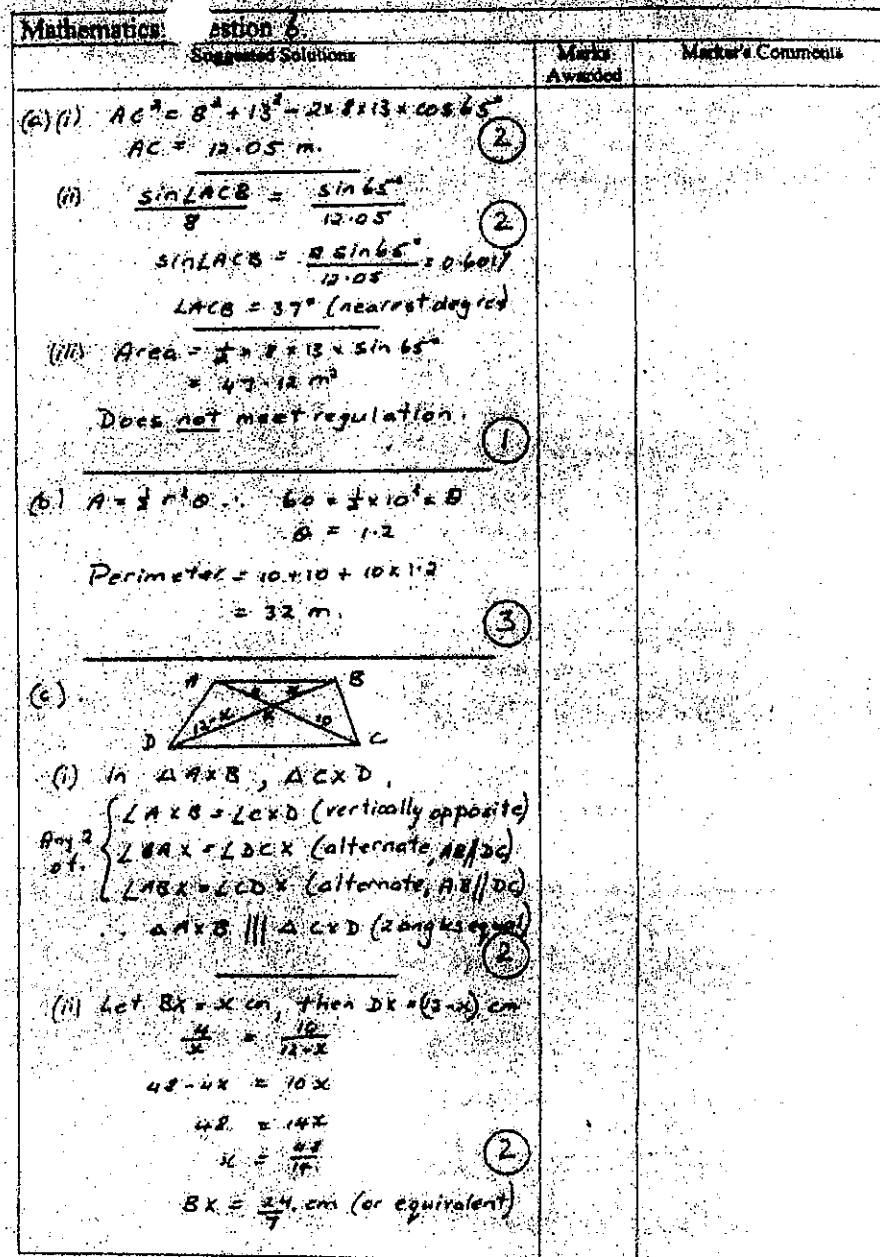 Mathematics estion 6
Suggested Solutions
Marks Awarded
Marker's Comments
(a) (i) AC² = 8² + 13² - 2 x 8 x 13 x cos 65°
AC = 12.05 m.
(2)
(ii) sin∠ACB / 8 = sin 65° / 12.05
(2)
sin∠ACB = 8 sin 65° / 12.05 = 0.6017
∠ACB = 37° (nearest degree)
(iii) Area = ½ x 8 x 13 x sin 65°
= 47.12 m²
Does not meet regulation.
(1)
(b) A = ½ r²θ ∴ 60 = ½ x 10² x θ
θ = 1.2
Perimeter = 10 + 10 + 10 x 1.2
= 32 m.
(3)
(c)
A B
x
12-x X 10
D C
(i) In ΔAXB, ΔCXD,
∠AXB = ∠CXD (vertically opposite)
Any 2 of. ∠BAX = ∠DCX (alternate, AB//DC)
∠ABX = ∠CDX (alternate, AB//DC)
∴ ΔAXB ||| ΔCXD (2 angles equal)
(2)
(ii) Let BX = x cm, then DX = cm
4/x = 10/12-x
48 - 4x = 10x
48 = 14x
x = 48/14
(2)
BX = 24/7 cm (or equivalent)